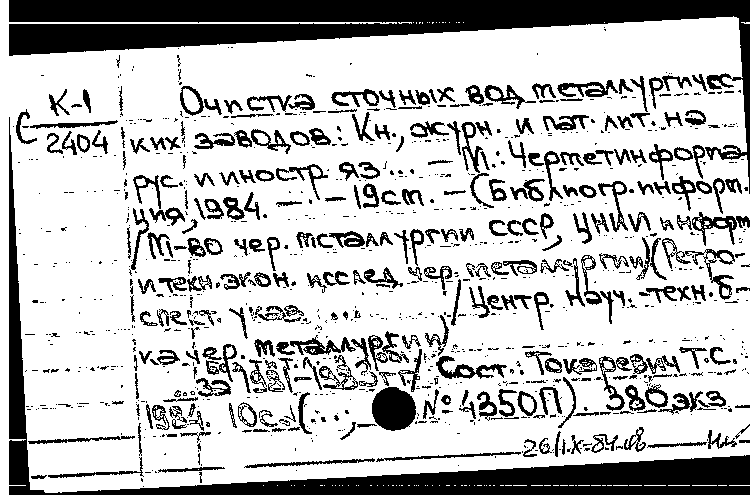 К-1
С 2404
Очистка сточных вод металлургичес-
ких заводов: Кн., журн. и пат. лит. на
рус. и иностр. яз ... – М.: Черметинформа-
ция, 1984. – . – 19см. – (Библиогр. информ.
/М-во чер. металлургии СССР, ЦНИИ информ
и техн. экон. исслед. чер. металлургии) (Ретро-
спект. указ. ... / Центр. науч.-техн. б-
ка чер. металлургии)
...За 1981-1983 гг. / Сост.: Токаревич Т.С.
1984. 10с. (... № 4350П). 380экз